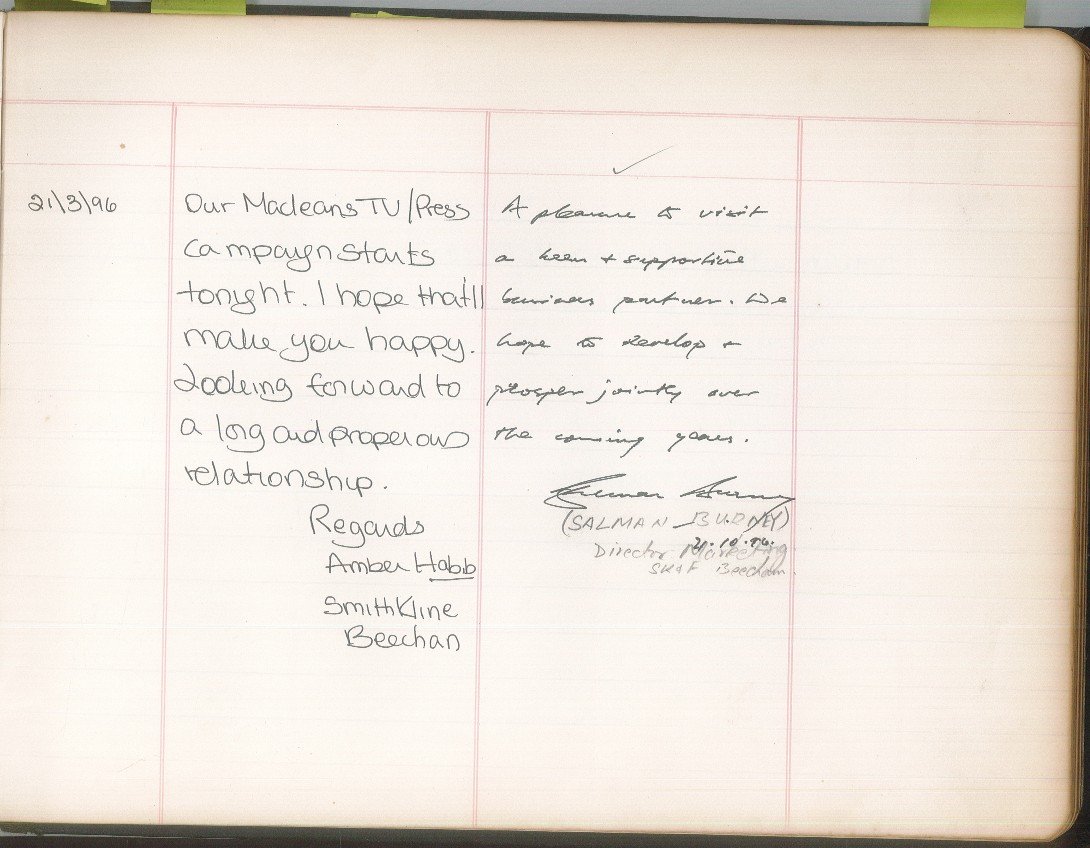 21/3/96
Our Macleans TV/Press
campaign starts
tonight. I hope that'll
make you happy.
Looking forward to
a long and properous
relationship.
Regards
Amber Habib
SmithKline
Beechan
A pleasure to visit
a keen + supportive
business partner. We
hope to develop +
prosper jointly over
the coming years.
(SALMAN BURNEY)
21.10.96.
Director Marketing
SK+F Beecham.